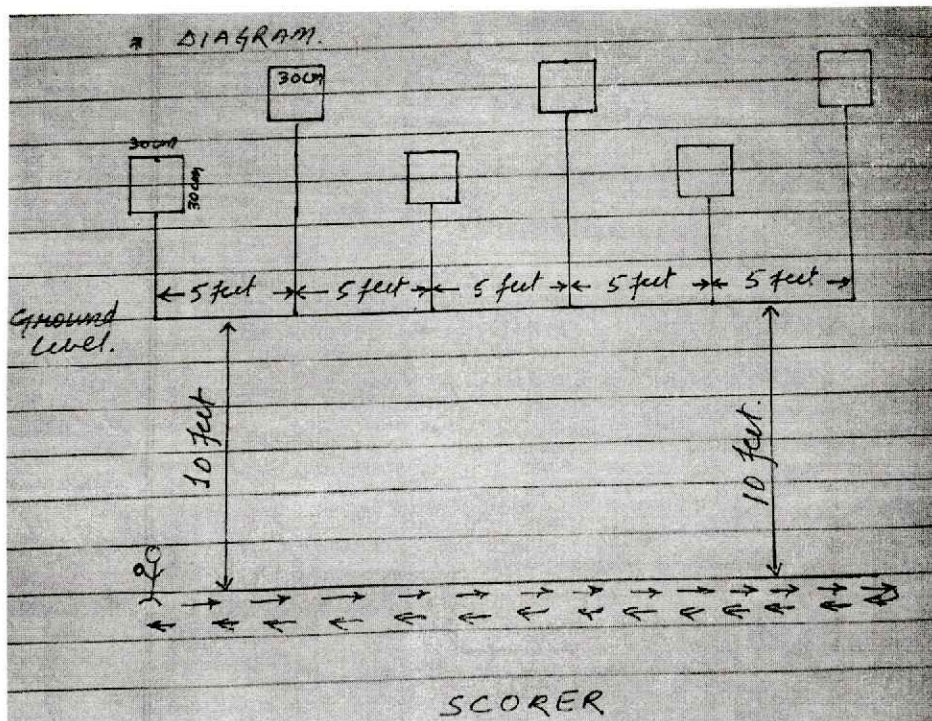 * DIAGRAM.
30cm
30cm
30cm
5 feet 5 feet 5 feet 5 feet 5 feet
Ground
level.
10 feet
10 feet.
SCORER